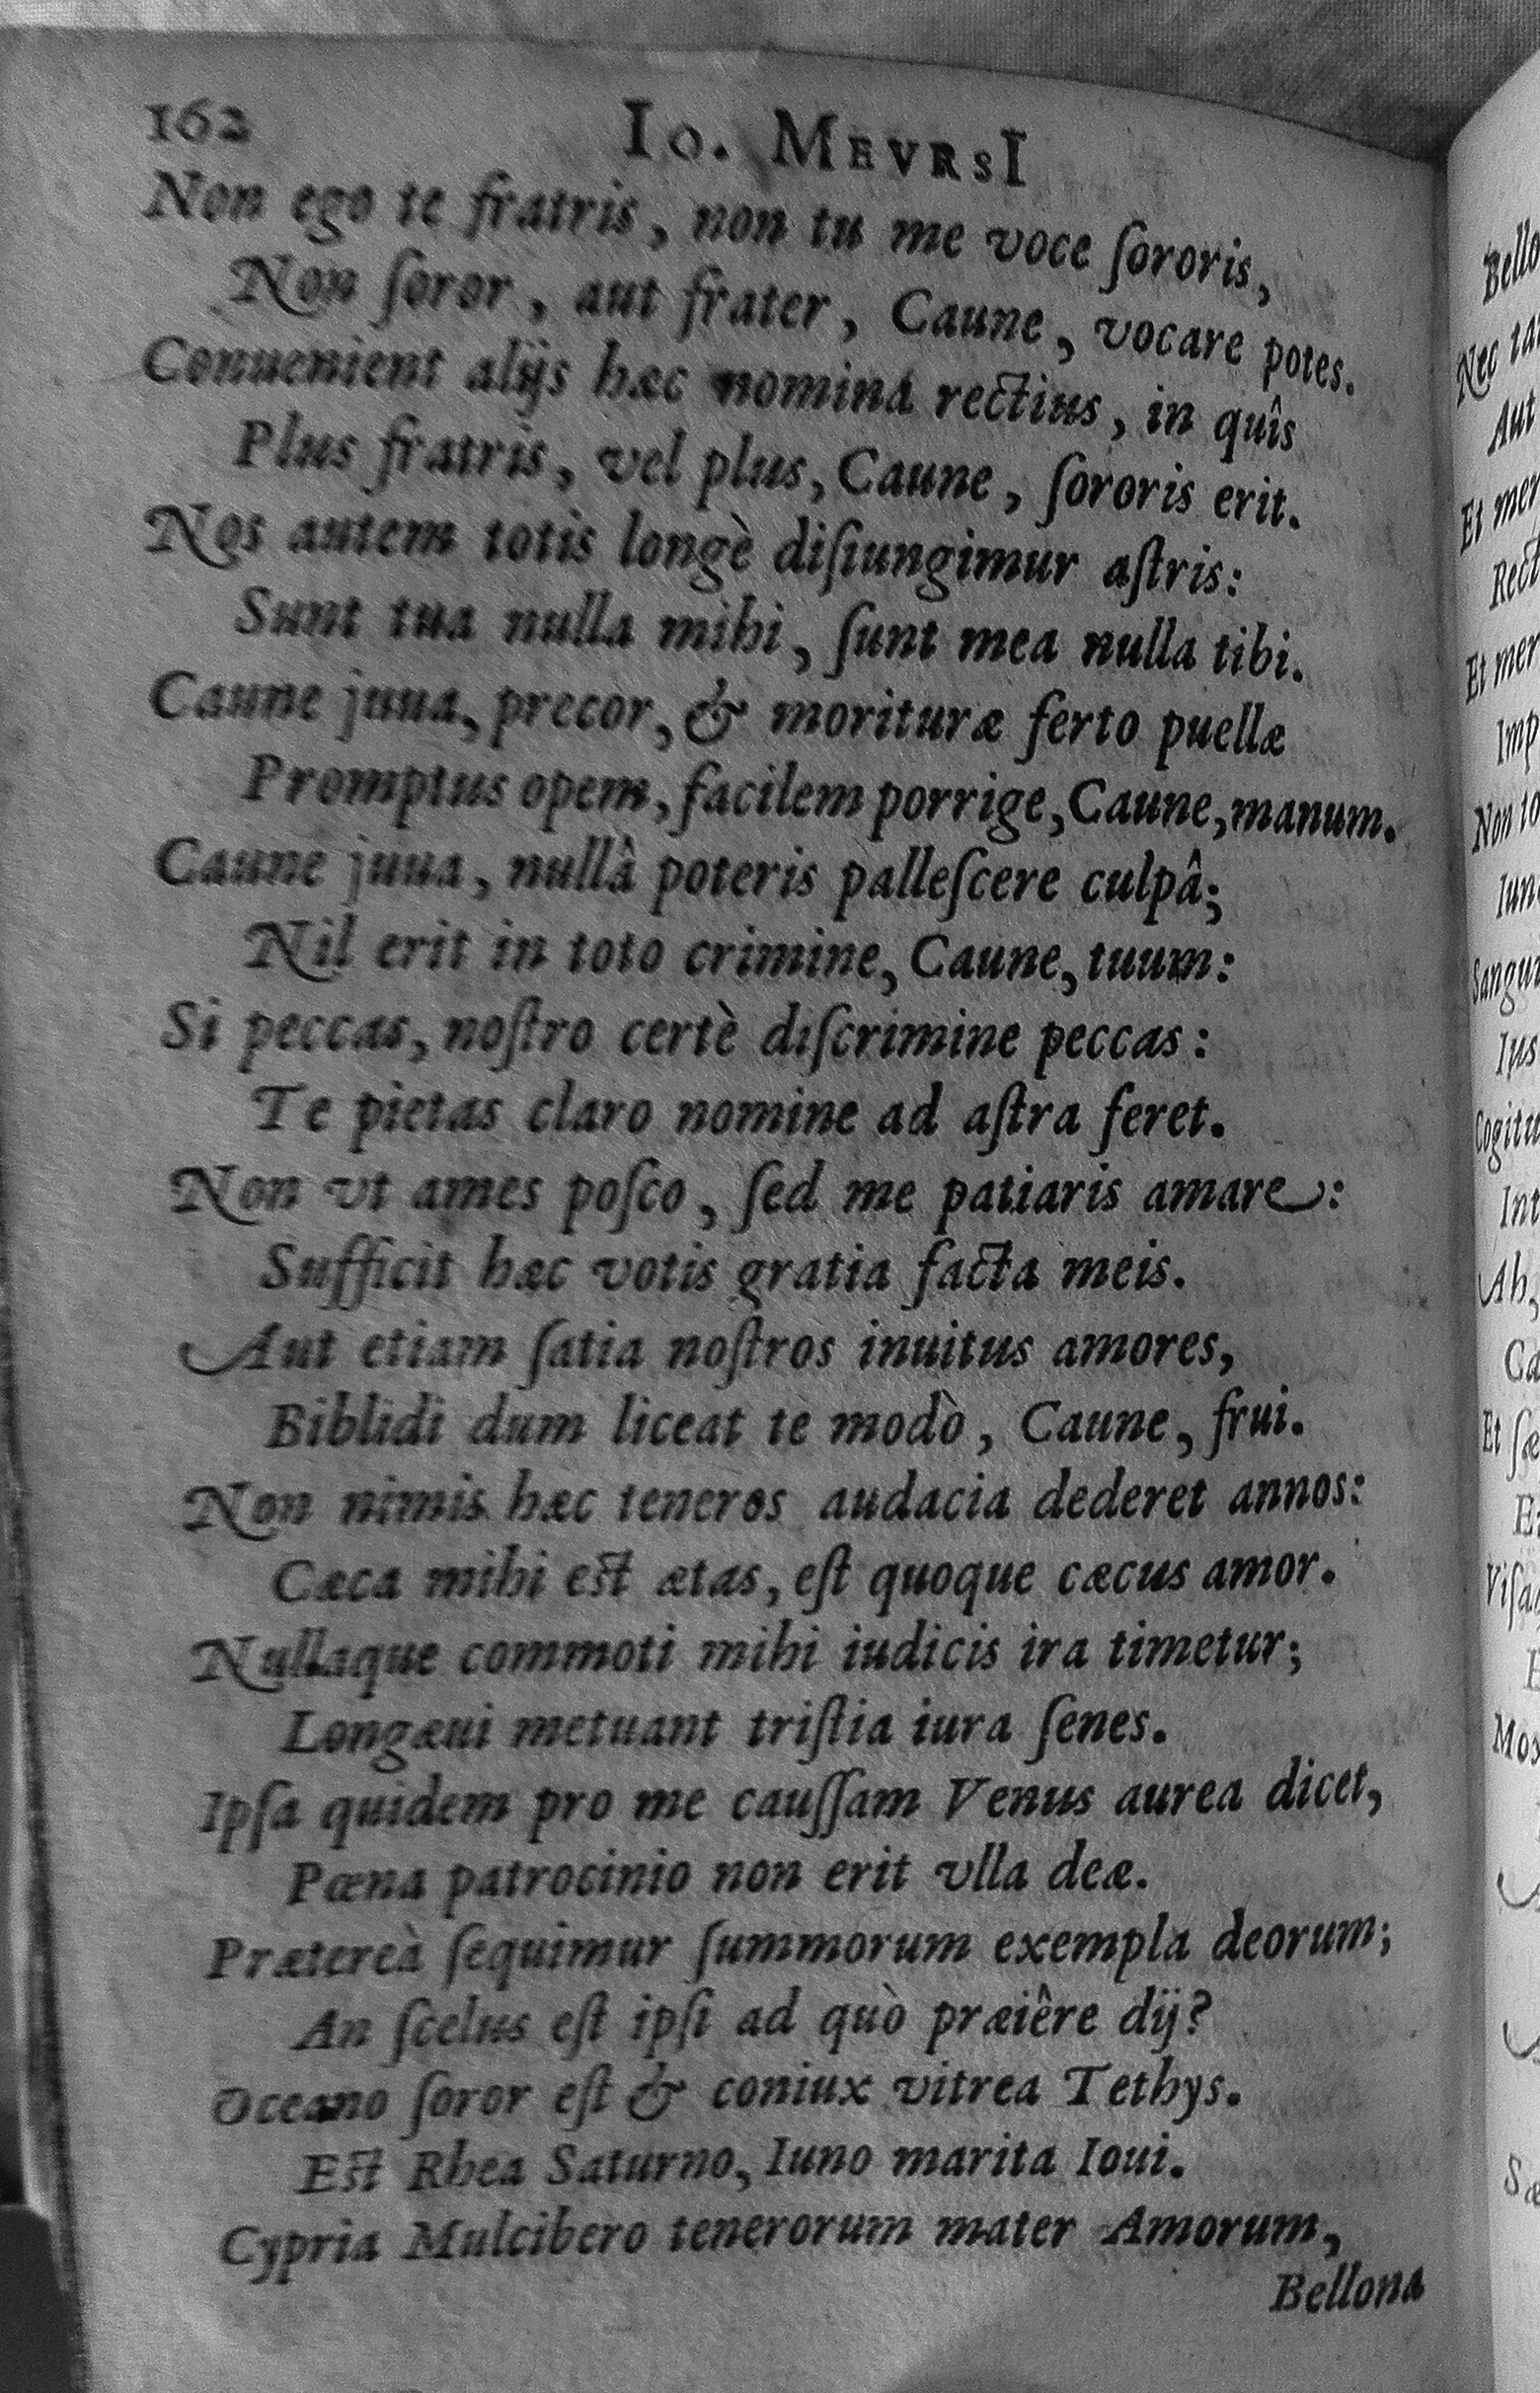 162 Io. MEVRSI
Non ego te fratris, non tu me voce ſororis,
Non ſoror, aut frater, Caune, vocare potes.
Conuenient alijs hæc nomina rectius, in quîs
Plus fratris, vel plus, Caune, ſororis erit.
Nos autem totis longè diſiungimur aſtris:
Sunt tua nulla mihi, ſunt mea nulla tibi.
Caune juua, precor, & morituræ ferto puellæ
Promptus opem, facilem porrige, Caune, manum.
Caune juua, nullâ poteris palleſcere culpâ;
Nil erit in toto crimine, Caune, tuum:
Si peccas, noſtro certè diſcrimine peccas:
Te pietas claro nomine ad aſtra feret.
Non vt ames poſco, ſed me patiaris amare:
Sufficit hæc votis gratia facta meis.
Aut etiam ſatia noſtros inuitus amores,
Biblidi dum liceat te modò, Caune, frui.
Non nimis hæc teneros audacia dederet annos:
Cæca mihi eſt ætas, eſt quoque cæcus amor.
Nullaque commoti mihi iudicis ira timetur;
Longæui metuant triſtia iura ſenes.
Ipſa quidem pro me cauſſam Venus aurea dicet,
Pœna patrocinio non erit vlla deæ.
Prætereà ſequimur ſummorum exempla deorum;
An ſcelus eſt ipſi ad quò præiêre dij?
Oceano ſoror eſt & coniux vitrea Tethys.
Eſt Rhea Saturno, Iuno marita Ioui.
Cypria Mulcibero tenerorum mater Amorum,
Bellona
Nec
Aut
Et
Et
Non
Ah,
Et